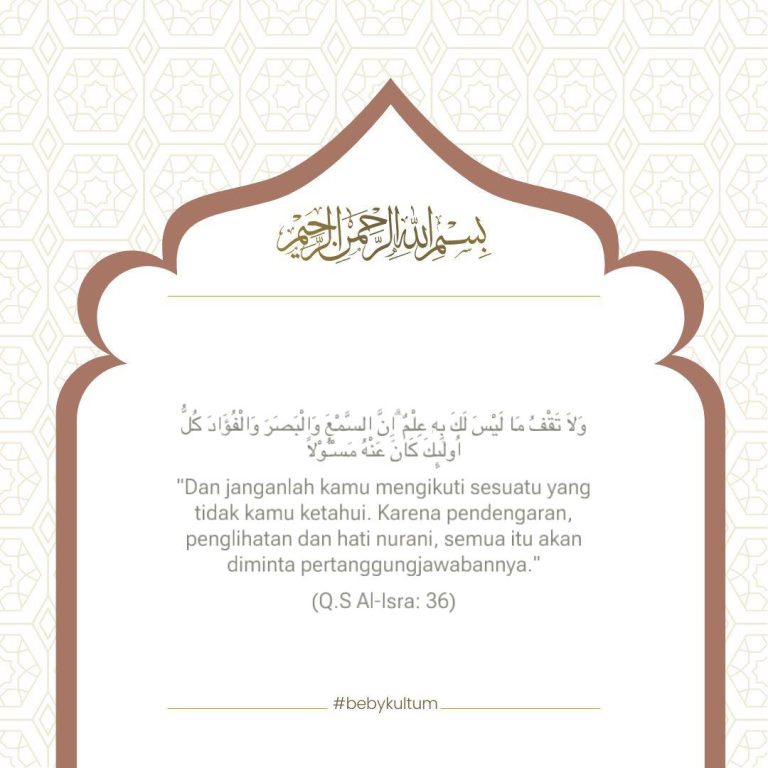 بِسْمِ اللهِ الرَّحْمٰنِ الرَّحِيْمِ
وَلاَ تَقْفُ مَا لَيْسَ لَكَ بِهٖ عِلْمٌ ۗاِنَّ السَّمْعَ وَالْبَصَرَ وَالْفُؤَادَ كُلُّ
اُولٰۤىِٕكَ كَانَ عَنْهُ مَسْـُٔوْلاً
"Dan janganlah kamu mengikuti sesuatu yang
tidak kamu ketahui. Karena pendengaran,
penglihatan dan hati nurani, semua itu akan
diminta pertanggungjawabannya."
(Q.S Al-Isra: 36)
#bebykultum